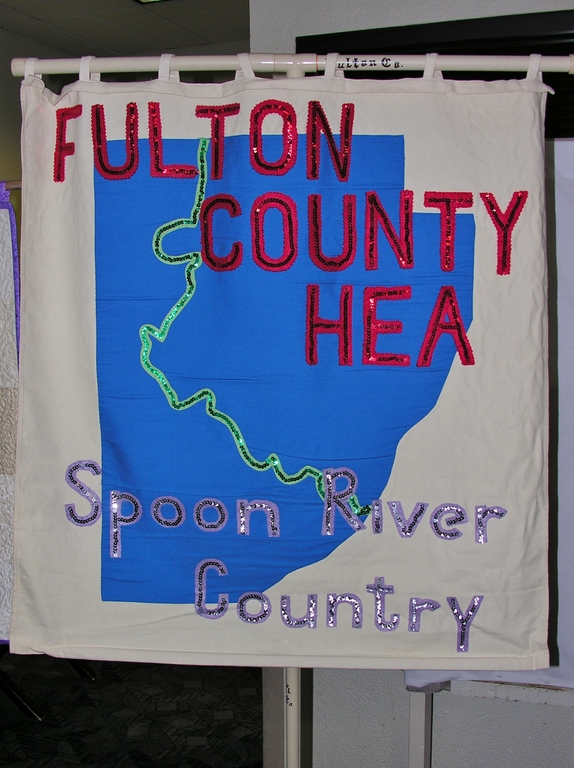 Fulton Co.
FULTON
COUNTY
HEA
Spoon River
Country